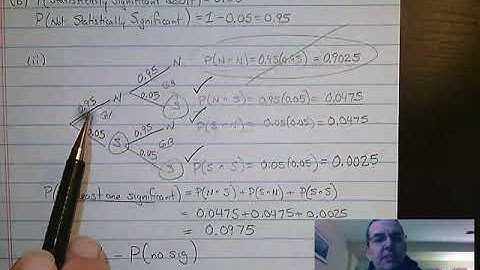 P(Statistically Significant Result) = 0.05
P(Not Statistically Significant) = 1 - 0.05 = 0.95
(ii)
0.95 N P(N∩N) = 0.95(0.95) = 0.9025
0.95 N 0.05 S P(N∩S) = 0.95(0.05) = 0.0475
0.05 S 0.95 N P(S∩N) = 0.05(0.95) = 0.0475
0.05 S P(S∩S) = 0.05(0.05) = 0.0025
P( least one significant) = P(N∩S) + P(S∩N) + P(S∩S)
= 0.0475 + 0.0475 + 0.0025
= 0.0975
- P(no sig)